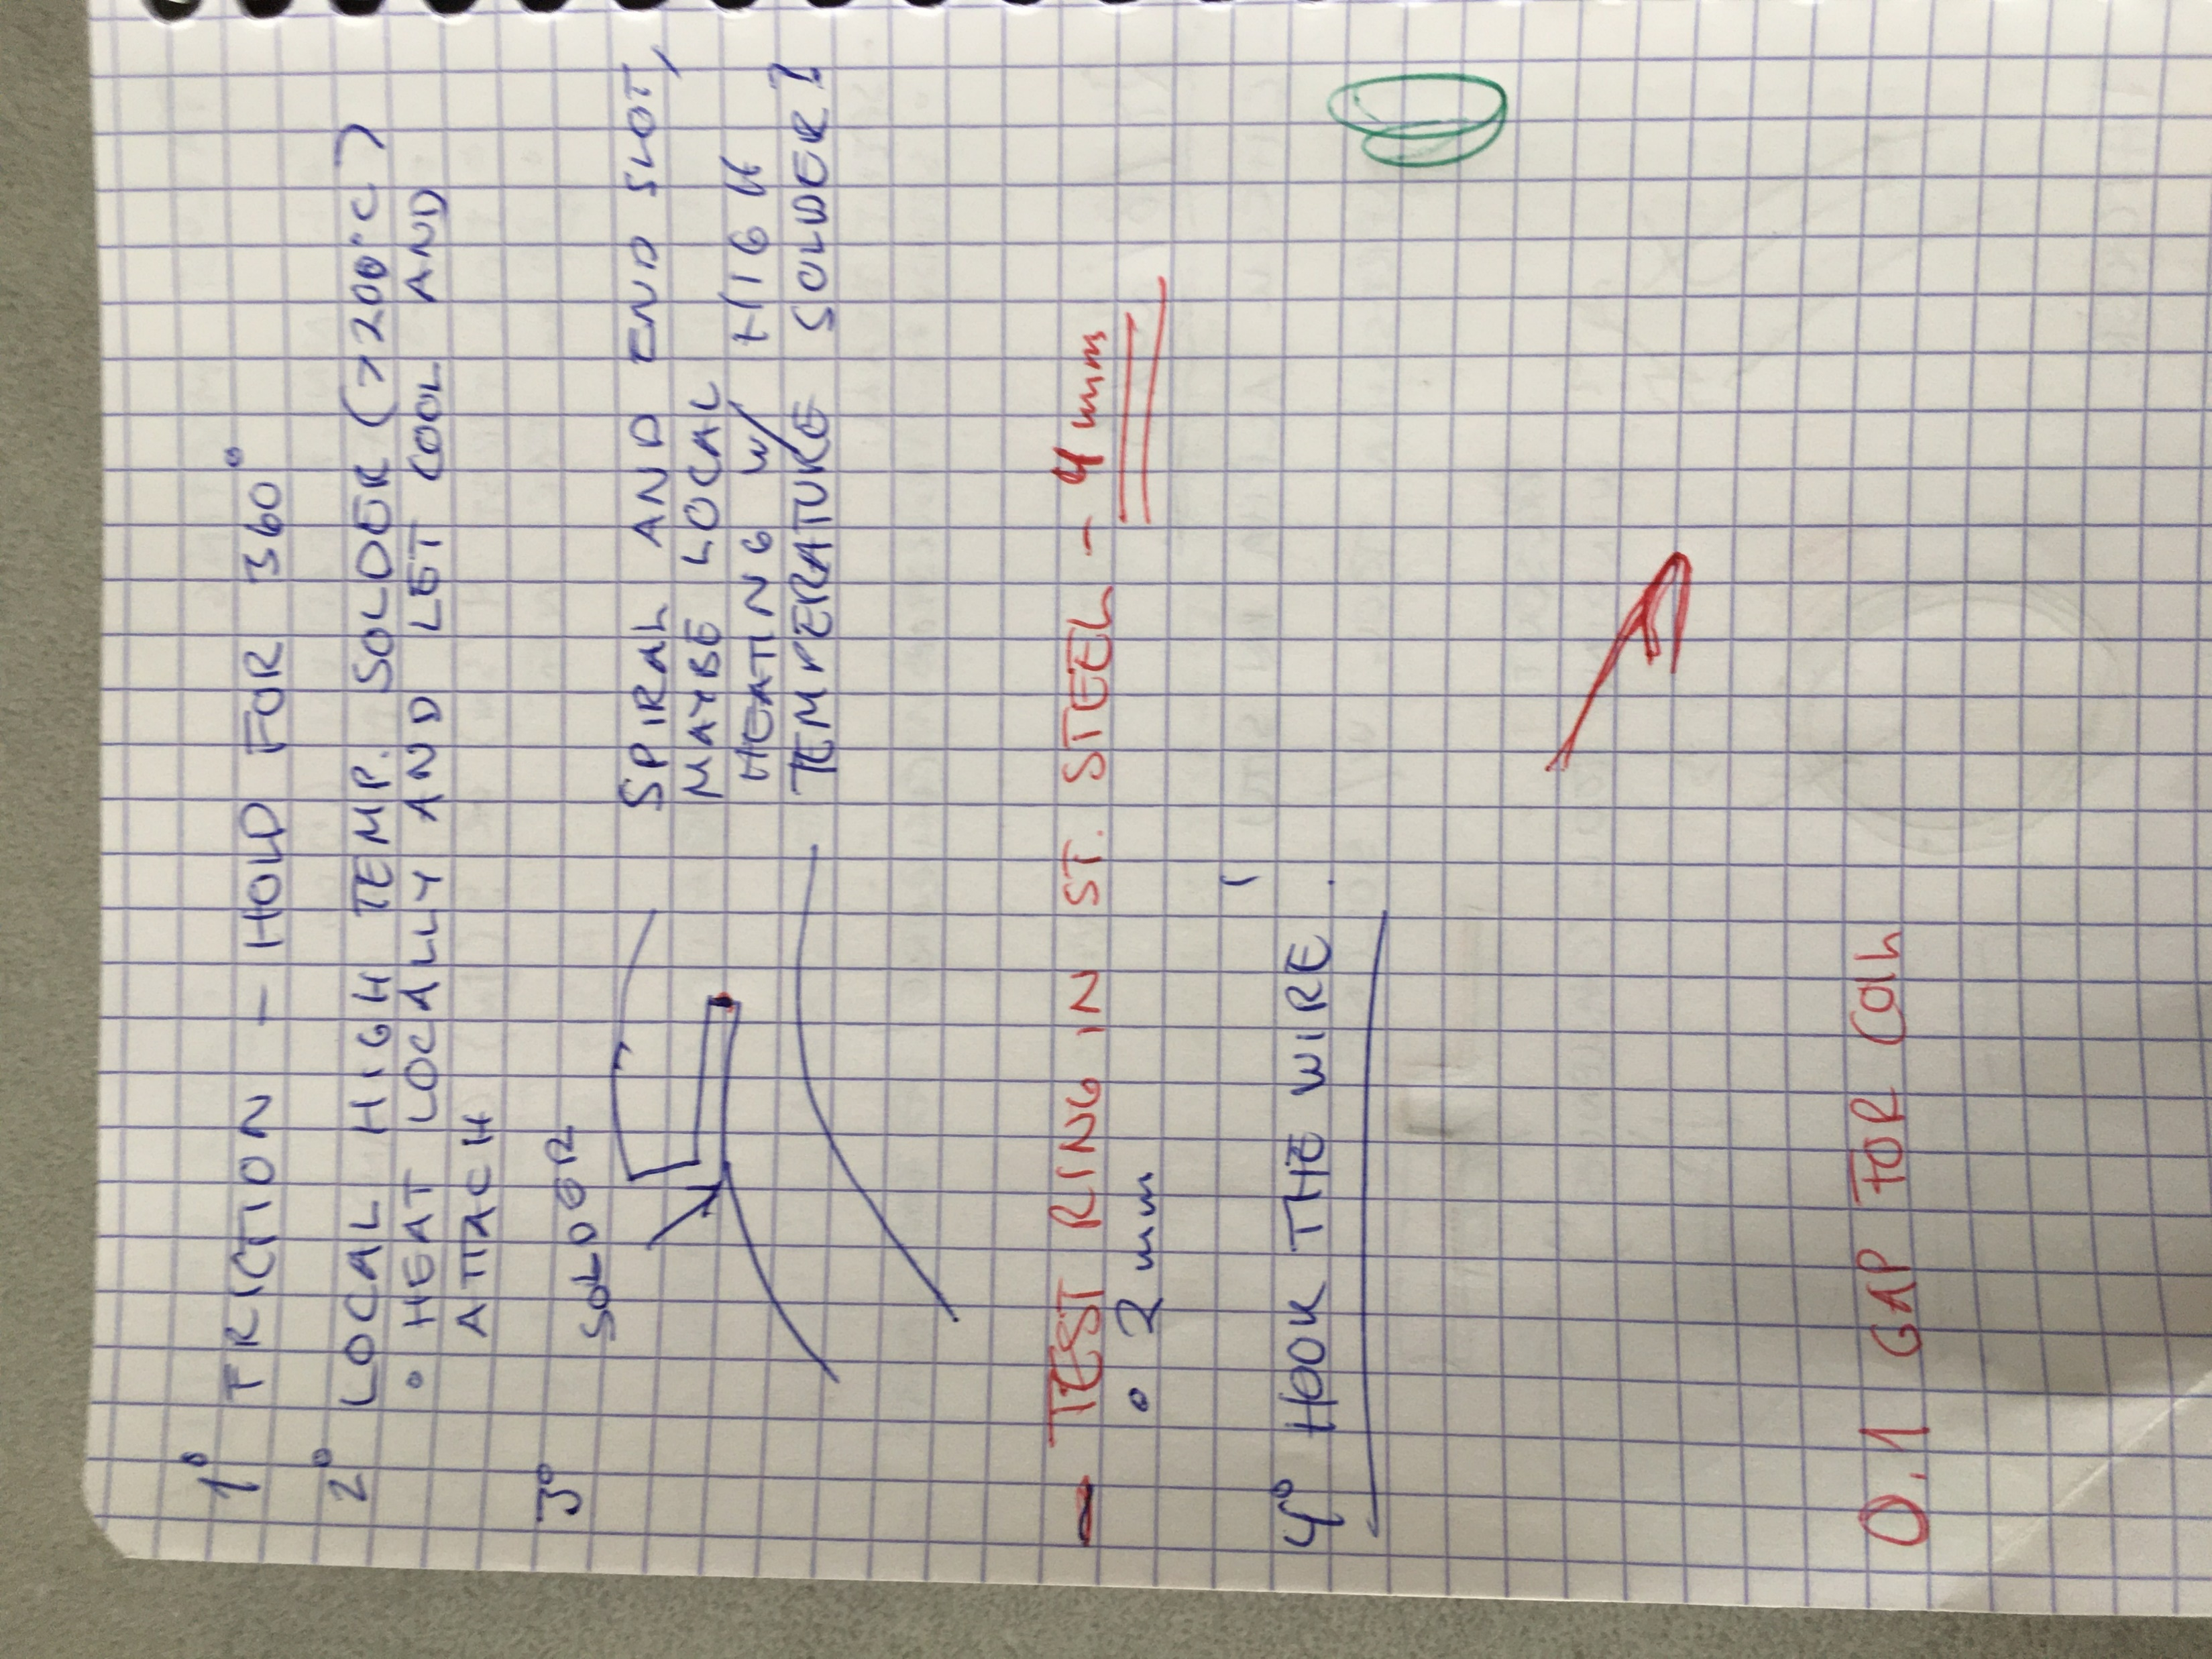 1° FRICTION - HOLD FOR 360°
2° LOCAL HIGH TEMP. SOLDER (>200°C)
• HEAT LOCALLY AND LET COOL AND
ATTACH
3°
SOLDER
SPIRAL AND END SLOT,
MAYBE LOCAL
HEATING W/ HIGH
TEMPERATURE SOLDER?
- TEST RING IN ST. STEEL - 4 mm
• 2 mm
4° HOOK THE WIRE
0.1 GAP FOR